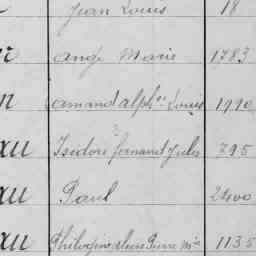 Jean Louis 18
ange Marie 1783
n amand alph.se Louis 1990
au Isidore fernand Jules 795
au Paul 2400
au Pierre Mie 1135